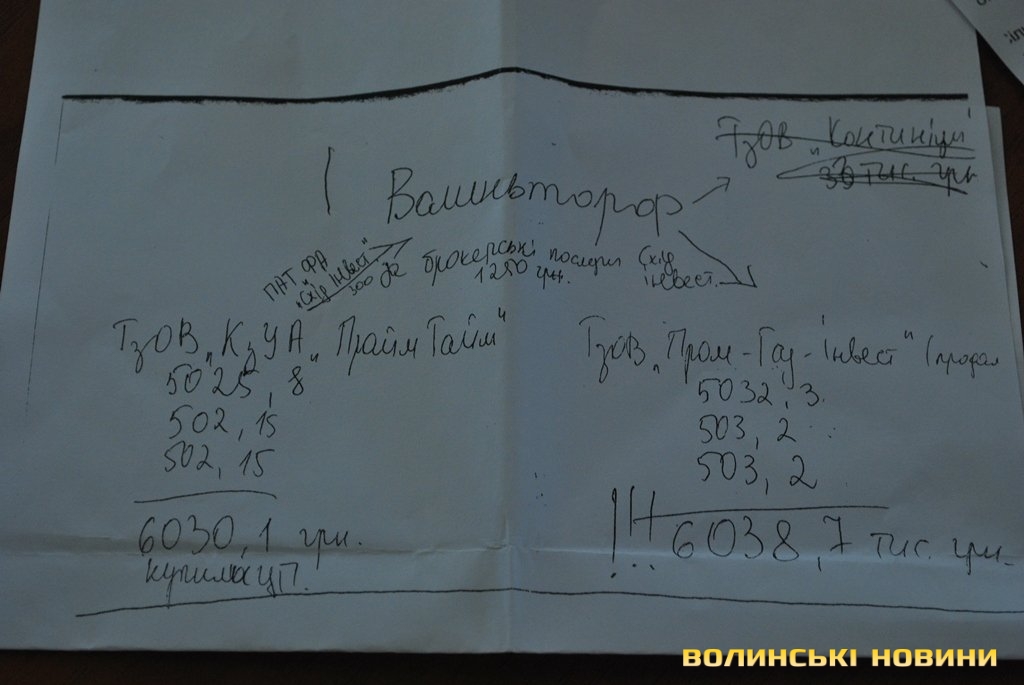 ТзОВ „Континіум"
30 тис. грн
Волиньторф
ПАТ ФА
„Схід Інвест"
300
брокерські послуги Схід
1250 грн. інвест.
ТзОВ „КзУА „ПраймТайм"
5025,8
502,15
502,15
6030,1 грн.
купила ЦП.
ТзОВ „Пром-Газ-Інвест" (продал
5032,3
503,2
503,2
!!! 6038,7 тис. грн.
ВОЛИНСЬКІ НОВИНИ